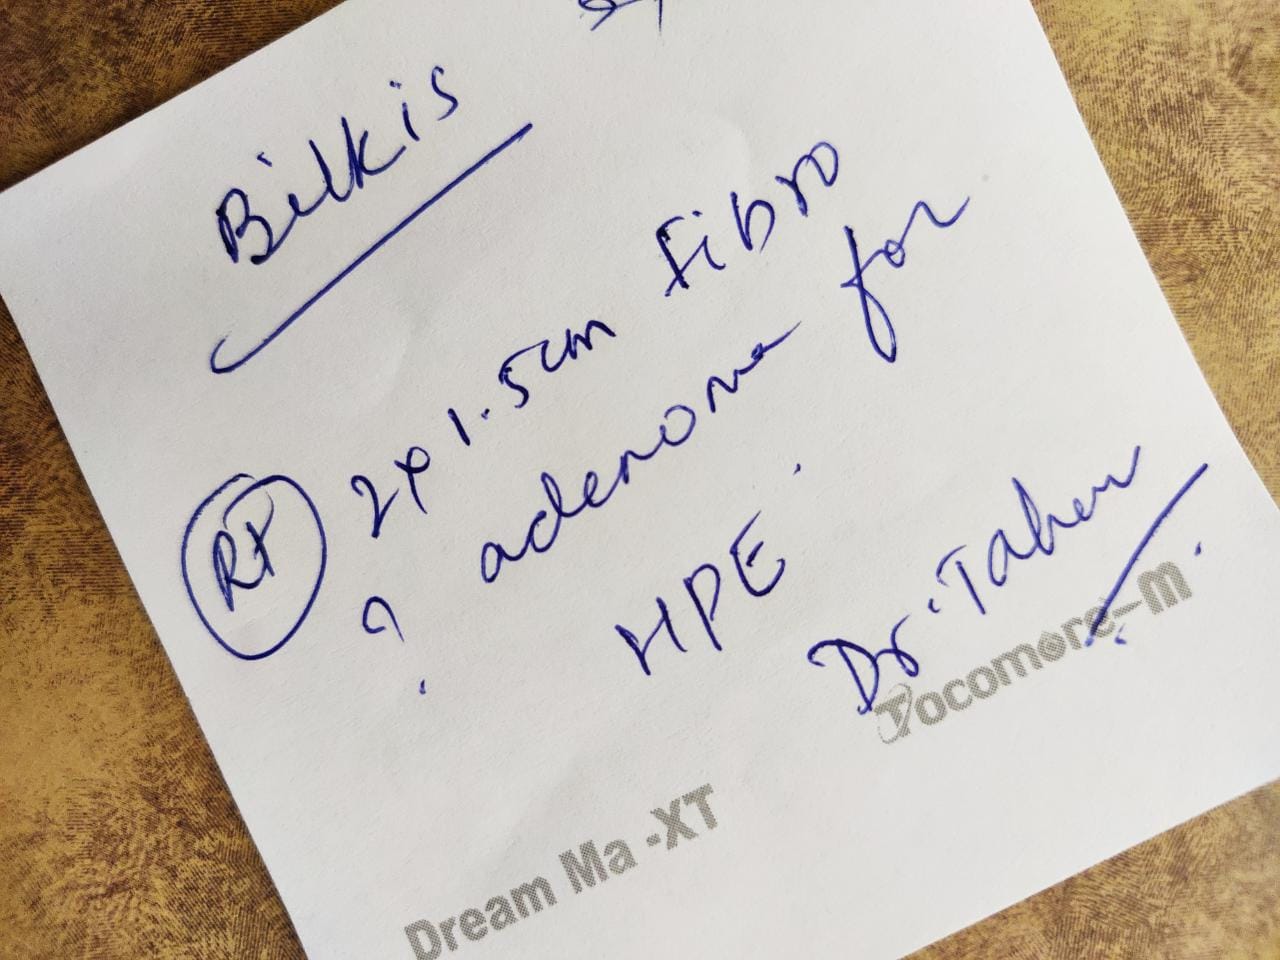 Bilkis
RT 2x1.5cm Fibro
? adenoma for
HPE.
Dr. Taher
Tocomore-M
Dream Ma -XT